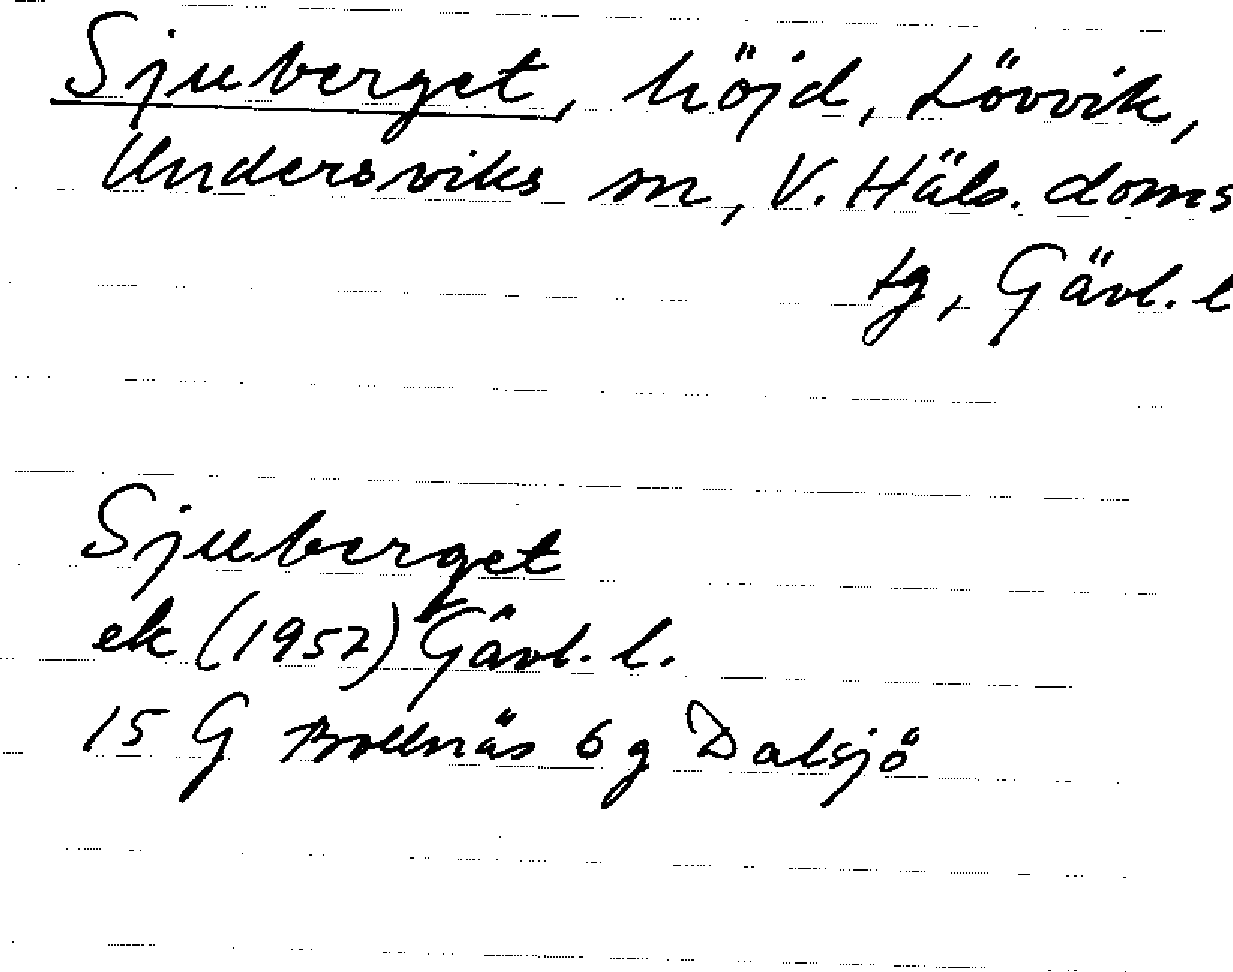 Sjuberget, höjd, Lövvik,
Undersviks sn, V. Häls. doms
tg, Gävl. l
Sjuberget
ek (1957) Gävl. l.
15 G Bollnäs 6 g Dalsjö